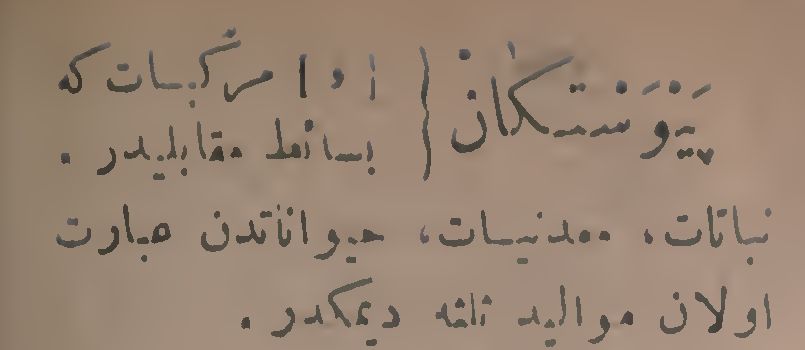 پیوستکان { ا و ا مرکبات که
بسائط مقابلیدر .
نباتات، معدنیات، حیواناتدن عبارت
اولان موالید ثلثه دیمکدر .